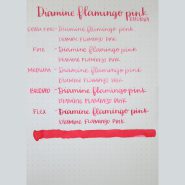 Diamine flamingo pink
EXTRA FINE - Diamine flamingo pink
DIAMINE FLAMINGO PINK
FINE - Diamine flamingo pink
DIAMINE FLAMINGO PINK
MEDIUM - Diamine flamingo pink
DIAMINE FLAMINGO PINK
BROAD - Diamine flamingo pink
DIAMINE FLAMINGO PINK
FLEX - Diamine flamingo pink
DIAMINE FLAMINGO PINK